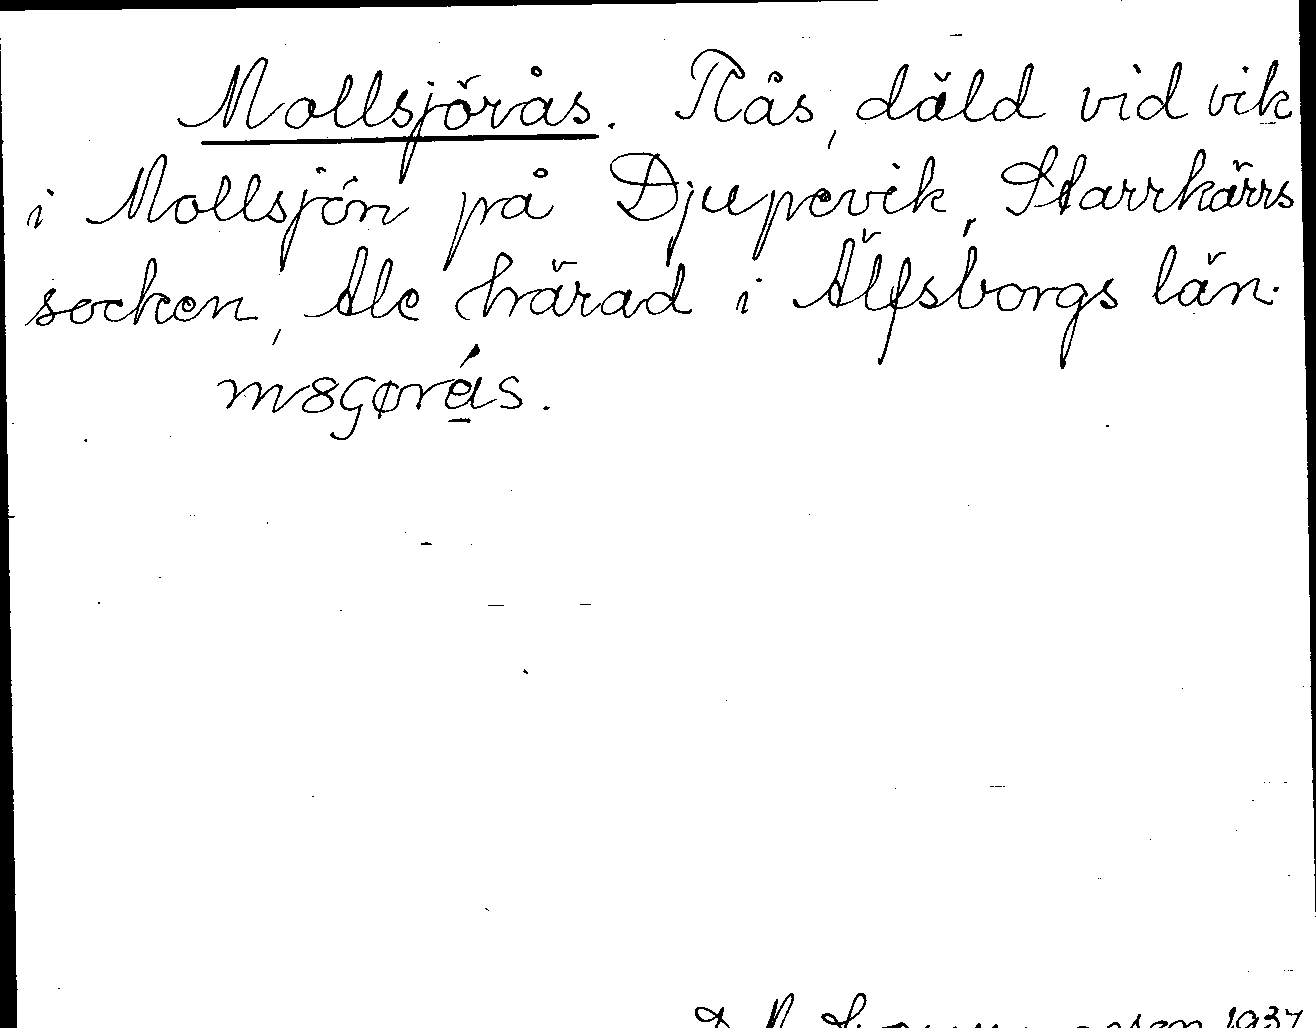 Mollsjörås. Rås, däld vid vik
i Mollsjön på Djupevik, Starrkärrs
socken, Ale härad i Älfsborgs län.
1937